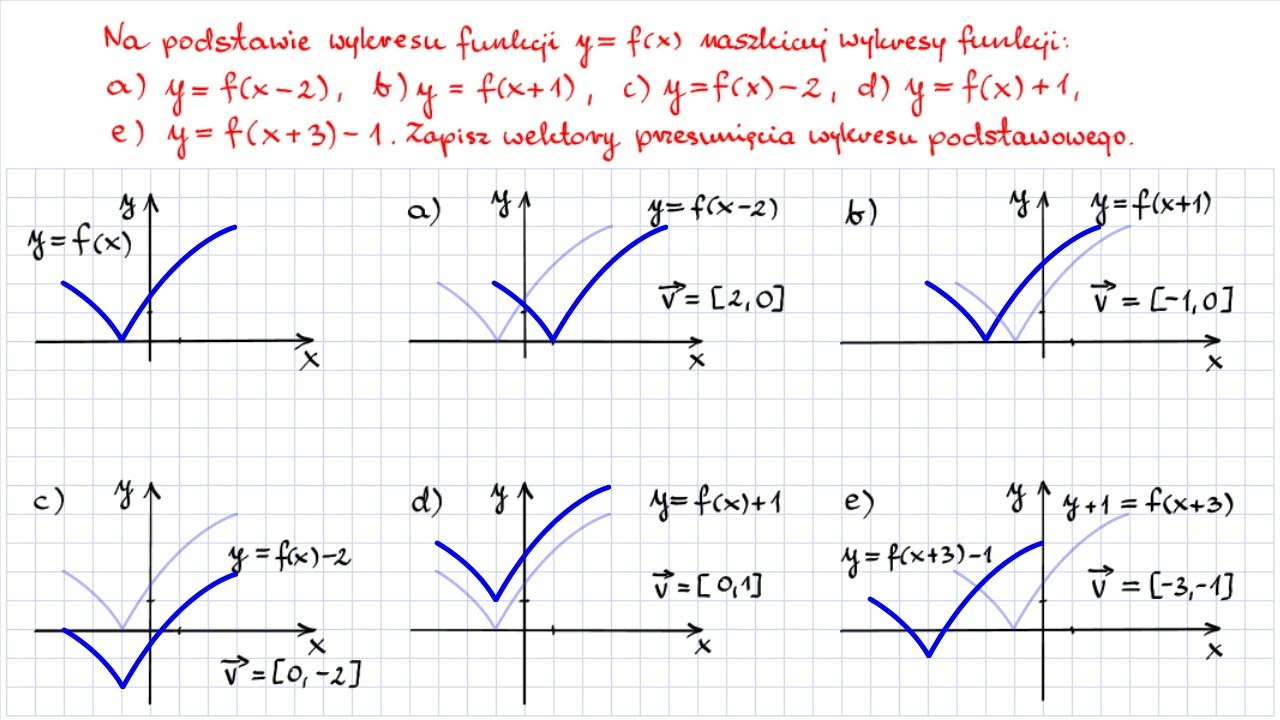 Na podstawie wykresu funkcji y = f(x) naszkicuj wykresy funkcji:
a) y = f(x-2), b) y = f(x+1), c) y = f(x)-2, d) y = f(x)+1,
e) y = f(x+3)-1. Zapisz wektory przesunięcia wykresu podstawowego.
y
y = f(x)
x
a)
y
y = f(x-2)
v⃗ = [2,0]
x
b)
y
y = f(x+1)
v⃗ = [-1,0]
x
c)
y
y = f(x)-2
x
v⃗ = [0,-2]
d)
y
y = f(x)+1
v⃗ = [0,1]
x
e)
y
y+1 = f(x+3)
y = f(x+3)-1
v⃗ = [-3,-1]
x